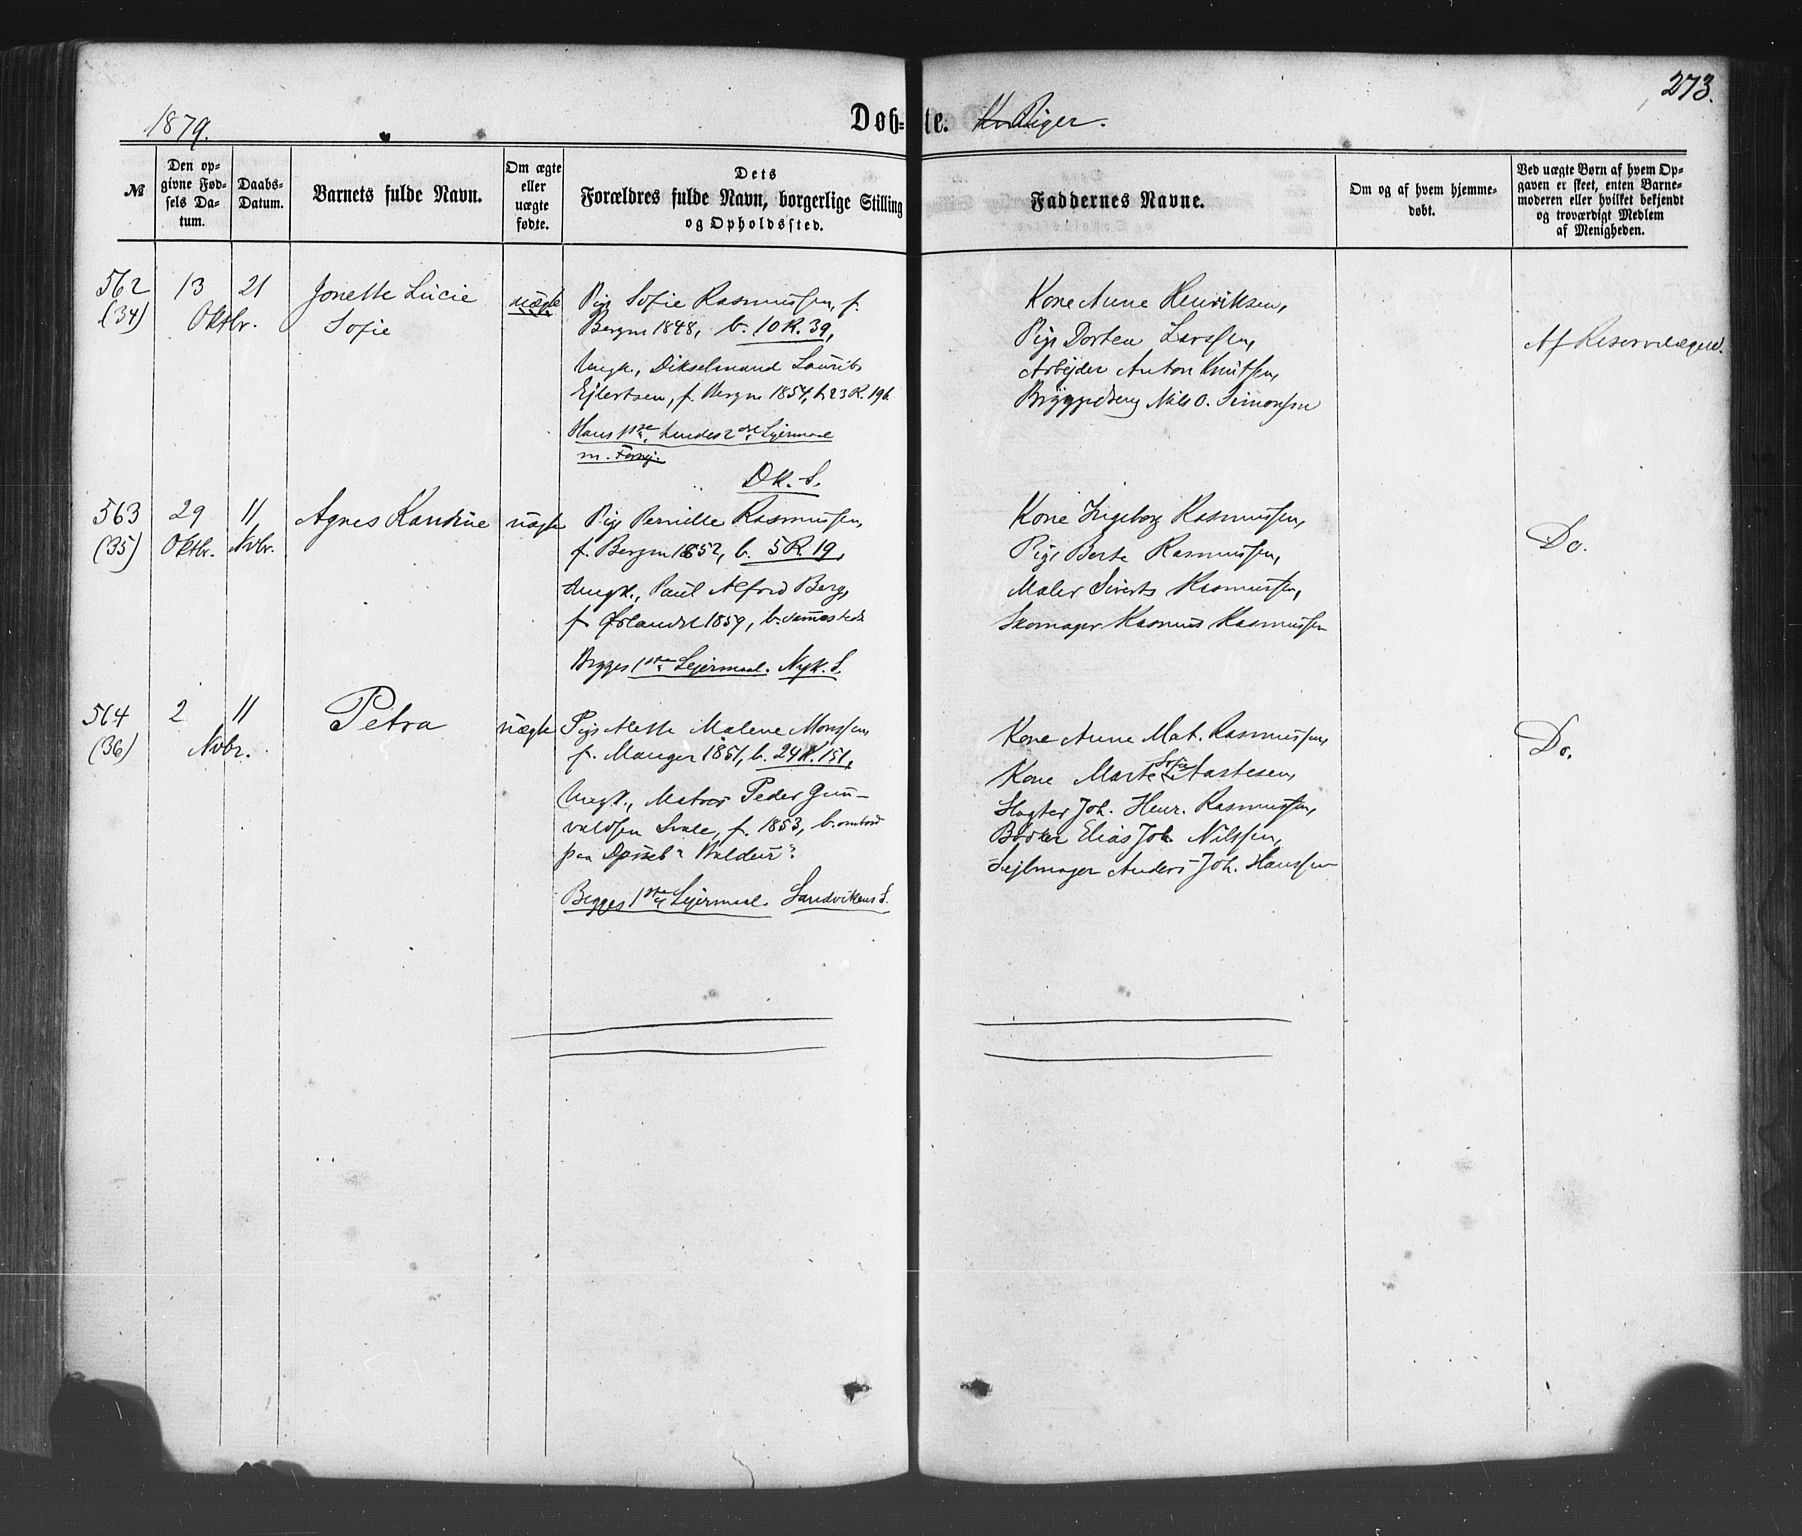 273.
1879.
Døb=te. Piger.
№
Den op-
givne Fød-
sels Da-
tum.
Daabs-
Datum.
Barnets fulde Navn.
Om ægte
eller
uægte
fødte.
Dets
Forældres fulde Navn, borgerlige Stilling
og Opholdssted.
Faddernes Navne.
Om og af hvem hjemme-
døbt.
Ved uægte Børn af hvem Op-
gaven er skeet, enten Barne-
moderen eller hvilket bekjendt
og troværdigt Medlem
af Menigheden.
562
(34)
13
Oktbr.
21
Jonette Lucie
Sofie
uægte
Pige Sofie Rasmussen, f.
Bergen 1848, b. 10 R. 39,
Ungk., Dikselmand Laurits
Ejlertsen, f. Bergen 1854, b. 23 R. 196
Hans 1ste, hendes 2det Lejermaal
m. Forsk.
DK. S.
Kone Anne Henriksen,
Pige Dorten Larssen,
Arbejder Anton Knutsen,
Nils O. Simonsen
Af Reservelægen.
563
(35)
29
Oktbr.
11
Nvbr.
Agnes Kandine
uægte
Pige Pernille Rasmussen,
f. Bergen 1852, b. 5 R. 19,
Ungk., Paul Alfred Berg,
f. Ørlandet 1859, b. sammesteds
Begges 1ste Lejermaal. Nyk. S.
Kone Ingeborg Rasmussen,
Pige Berte Rasmussen,
Maler Sivert Rasmussen,
Skomager Rasmus Rasmussen
Do.
564
(36)
2
Nvbr.
11
Petra
uægte
Pige Mette Malene Monssen
f. Manger 1851, b. 24 R. 151,
Ungk., Matros Peder Gun-
valdsen Svale, f. 1853, b. ombord
paa Dpsk. "Baldur".
Begges 1ste Lejermaal. Sandvikens S.
Kone Anne Mat. Rasmussen,
Kone Marte Sofie Aastesen,
Slagter Joh. Henr. Rasmussen,
Bødker Elias Joh. Nilssen,
Sejlmager Anders Joh. Hanssen
Do.